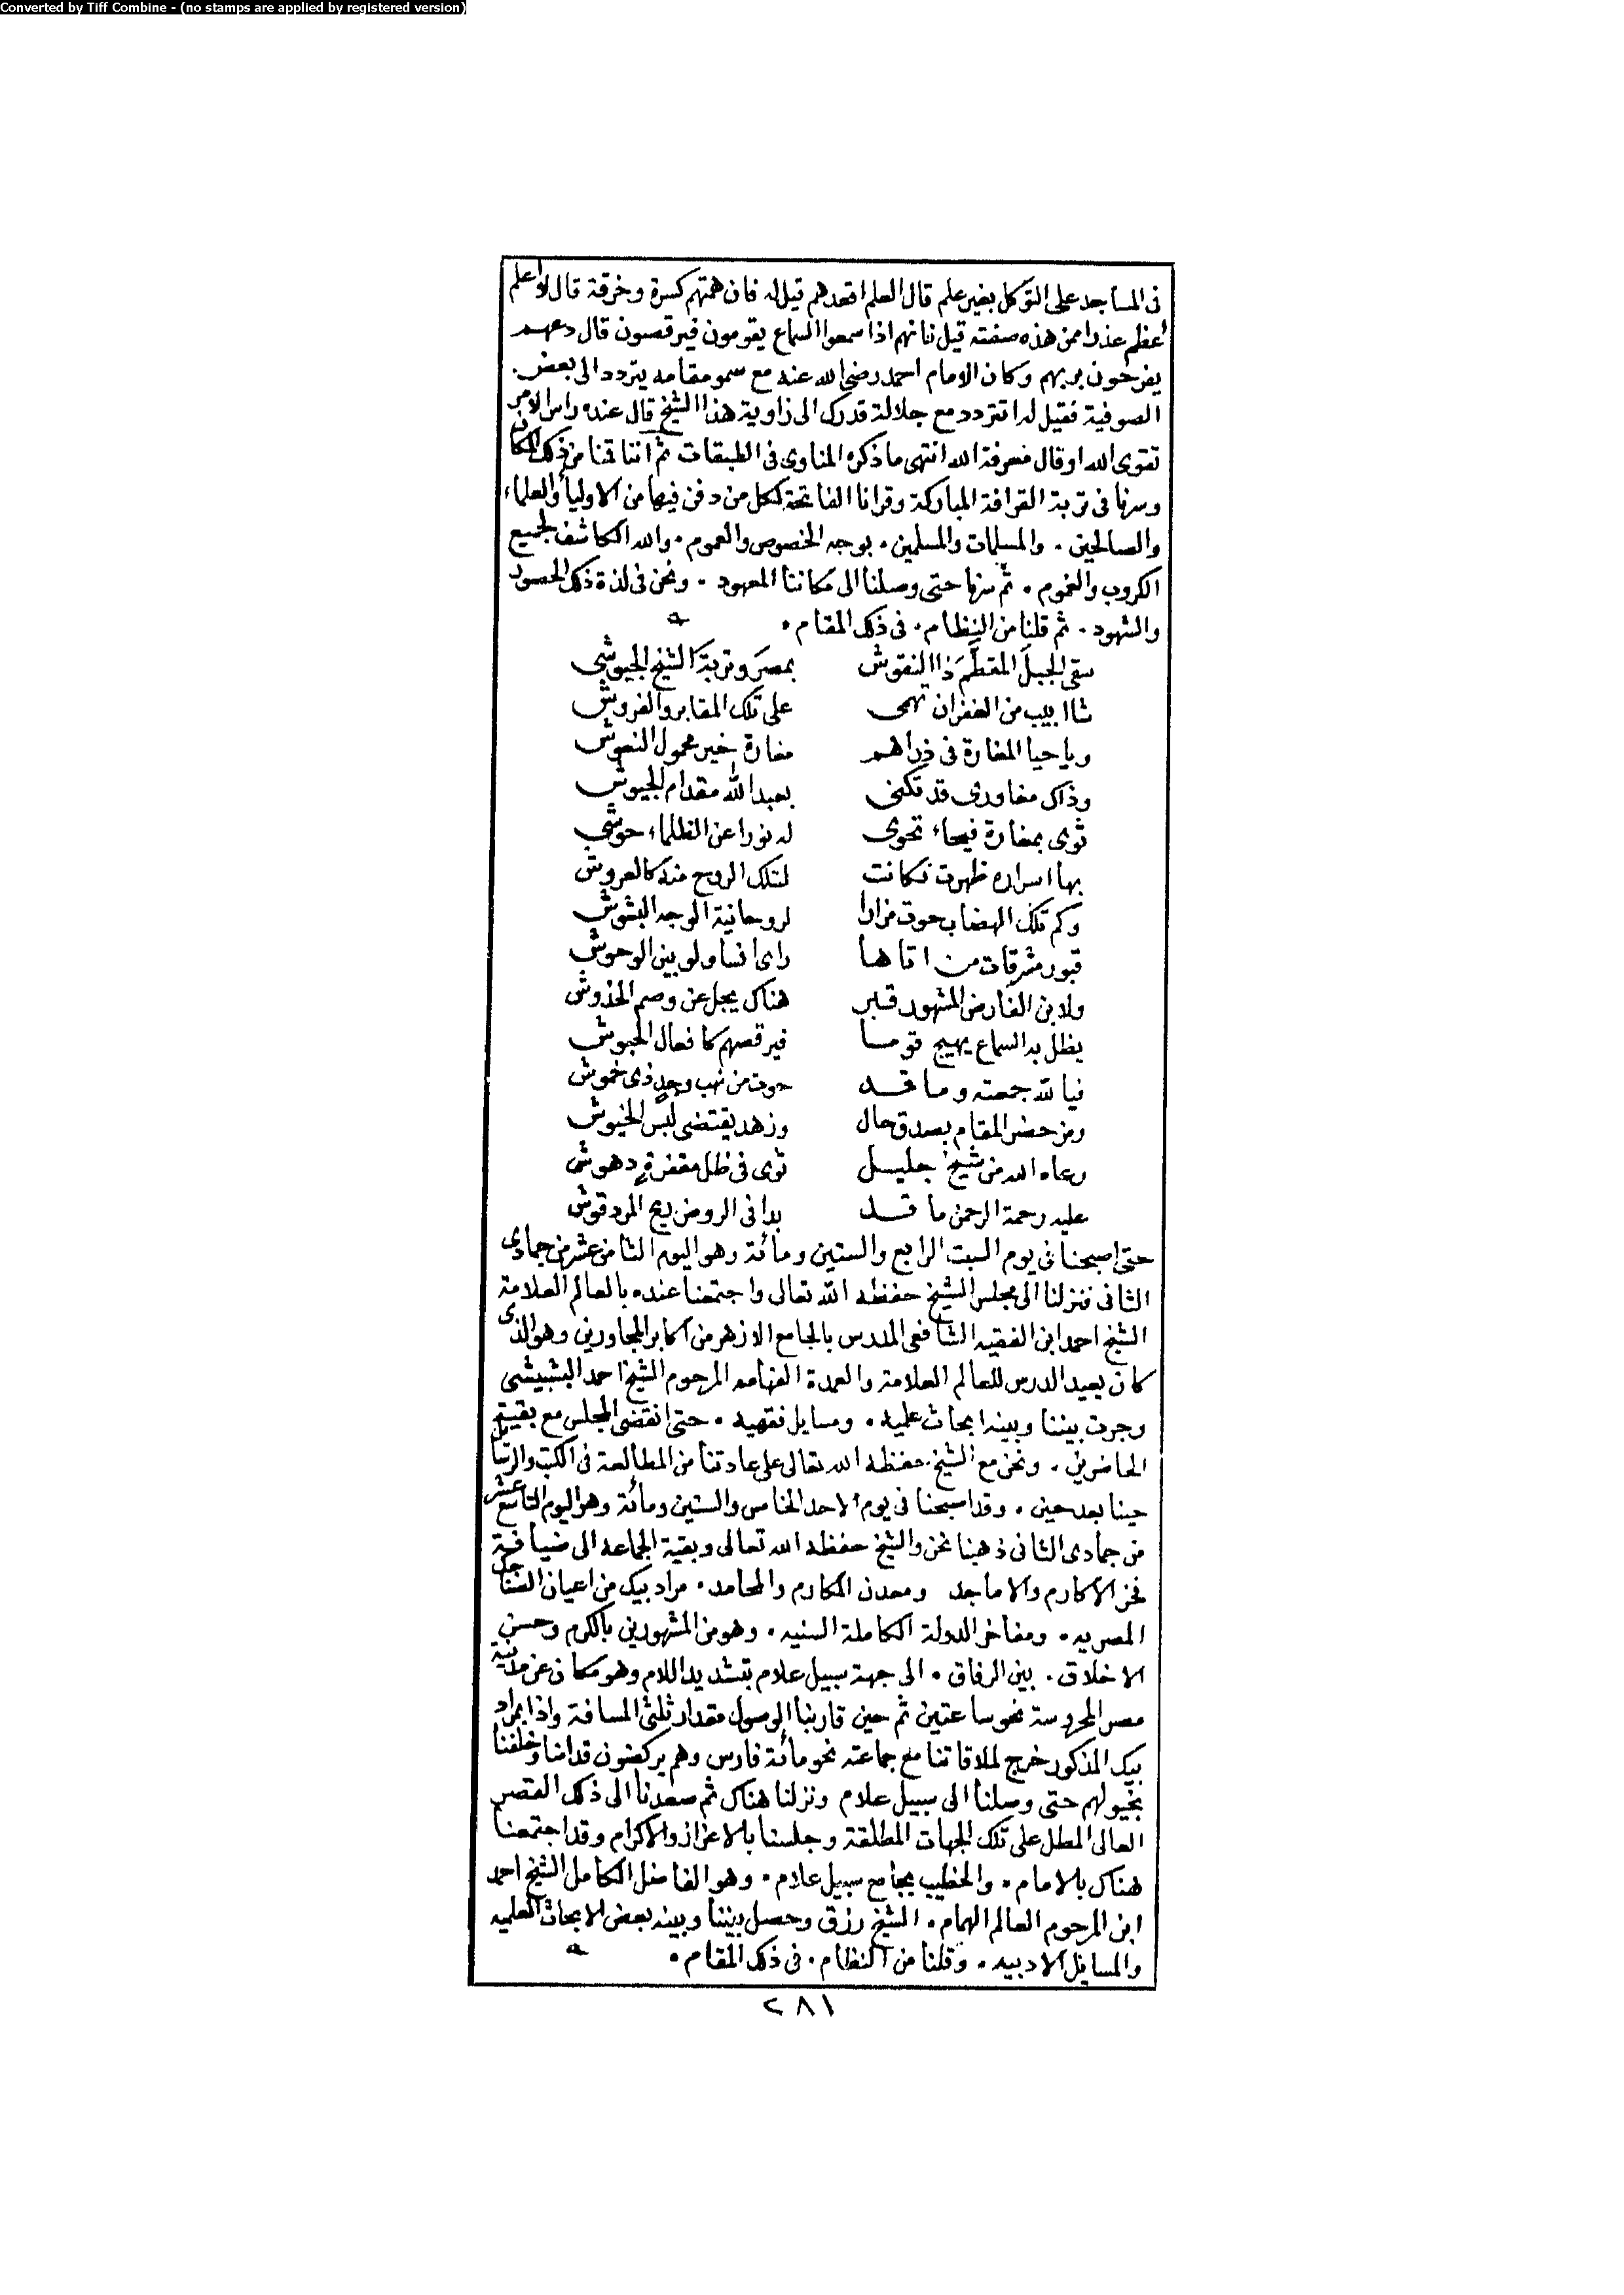 Converted by Tiff Combine - (no stamps are applied by registered version)
فى المساجد على التوكل بغير علم قال العلم اقعدهم قيل له فان همتهم كسرة وخرقة قال لا اعلم
اعظم عذرا ممن هذه صفته قيل فانهم اذا سمعوا السماع يقومون فيرقصون قال دعهم
يفرحون بربهم وكان الامام احمد رضي الله عنه مع سمو مقامه يتردد الى بعض
الصوفية فقيل له اتتردد مع جلالة قدرك الى زاوية هذا الشيخ قال عنده راس الامر
تقوى الله او قال معرفة الله انتهى ما ذكره المناوى فى الطبقات ثم اننا قمنا من ذلك المكان
وسرنا فى تربة القرافة المباركة وقرانا الفاتحة لكل من دفن فيها من الاولياء والعلماء
والصالحين . والمسلمات والمسلمين . بوجه الخصوص والعموم . والله الكاشف لجميع
الكروب والغموم . ثم سرنا حتى وصلنا الى مكاننا المعهود . ونحن فى لذة ذلك الحضور
والشهود . ثم قلنا من النظام . فى ذلك المقام .
سقى الجبل المقطم ذا النقوش بمصر وتربة الشيخ الجيوشي
شاابيب من الغفران تهمى على تلك المقابر والفروش
وياحيا المغارة فى ذراهم مغارة خير محمول النعوش
وذاك مغاورى قد تكنى بعبد الله مقدام الجيوش
ثوى بمغارة فيحاء تحوى له نورا عن الظلماء حوشي
بها اسراره ظهرت فكانت لتلك الروح منه كالعروش
وكم تلك الهضاب حوت مزارا لروحانية الوجه البشوش
قبور مشرقات من اتاها راى انسا ولو بين الوحوش
ولابن الفارض المشهور قبر هناك يجل عن وصم الخدوش
يظل به السماع يهيج قوما فيرقصهم كافعال الحبوش
فيالله جمعته وما قد حوت من نهب وجد ذى خموش
ومن حضر المقام بصدق حال وزهد يقتضى لبس الخيوش
رعاه الله من شيخ جليل ثوى فى ظل مقفرة دهوش
عليه رحمة الرحمن ما قد بدا فى الروض ريح المردقوش
حتى اصبحنا فى يوم السبت الرابع والستين ومائة وهو اليوم الثامن عشر من جمادى
الثانى فنزلنا الى مجلس الشيخ حفظه الله تعالى واجتمعنا عنده بالعالم العلامة
الشيخ احمد ابن الفقيه الشافعى المدرس بالجامع الازهر من اكابر المجاورين وهو الذى
كان يعيد الدرس للعالم العلامة والعمدة الفهامه المرحوم الشيخ احمد البشبيشى
وجرت بيننا وبينه ابحاث علميه . ومسايل فقهيه . حتى انقضى المجلس مع بقية
الحاضرين . ونحن مع الشيخ حفظه الله تعالى على عادتنا من المطالعة فى الكتب والرسايل
حينا بعد حين . وقد اصبحنا فى يوم الاحد الخامس والستين ومائة وهو اليوم التاسع عشر
من جمادى الثانى ذهبنا نحن والشيخ حفظه الله تعالى وبقية الجماعه الى ضيافة
فخر الاكارم والاماجد ومعدن المكارم والمحامد . مراد بيك من اعيان السناجك
المصريه . ومفاخر الدولة الكاملة السنيه . وهو من المشهورين بالكرم وحسن
الاخلاق . بين الرفاق . الى جهة سبيل علام بتشديد اللام وهو مكان عن مدينة
مصر المحروسة نحو ساعتين ثم حين قاربنا الوصول مقدار ثلثى المسافة واذا بمراد
بيك المذكور خرج لملاقاتنا مع جماعته نحو مائة فارس وهم يركضون قدامنا وخلفنا
بخيولهم حتى وصلنا الى سبيل علام ونزلنا هناك ثم صعدنا الى ذلك القصر
العالى المطل على تلك الجهات المطلقة وجلسنا بالاعزاز والاكرام وقد اجتمعنا
هناك بالامام . والخطيب بجامع سبيل علام . وهو الفاضل الكامل الشيخ احمد
ابن المرحوم العالم الهمام . الشيخ رزق وحصل بيننا وبينه بعض الابحاث العلميه
والمسايل الادبيه . وقلنا من النظام . فى ذلك المقام .
٢٨١